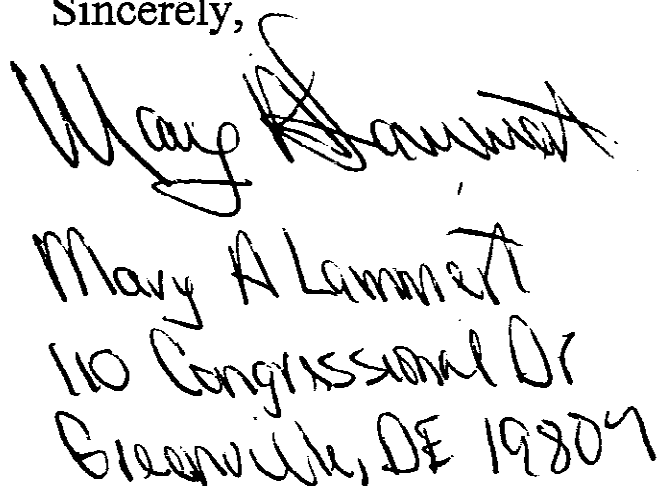 Sincerely,
Mary A Lammert
Mary A Lammert
110 Congressional Dr
Greenville, DE 19807